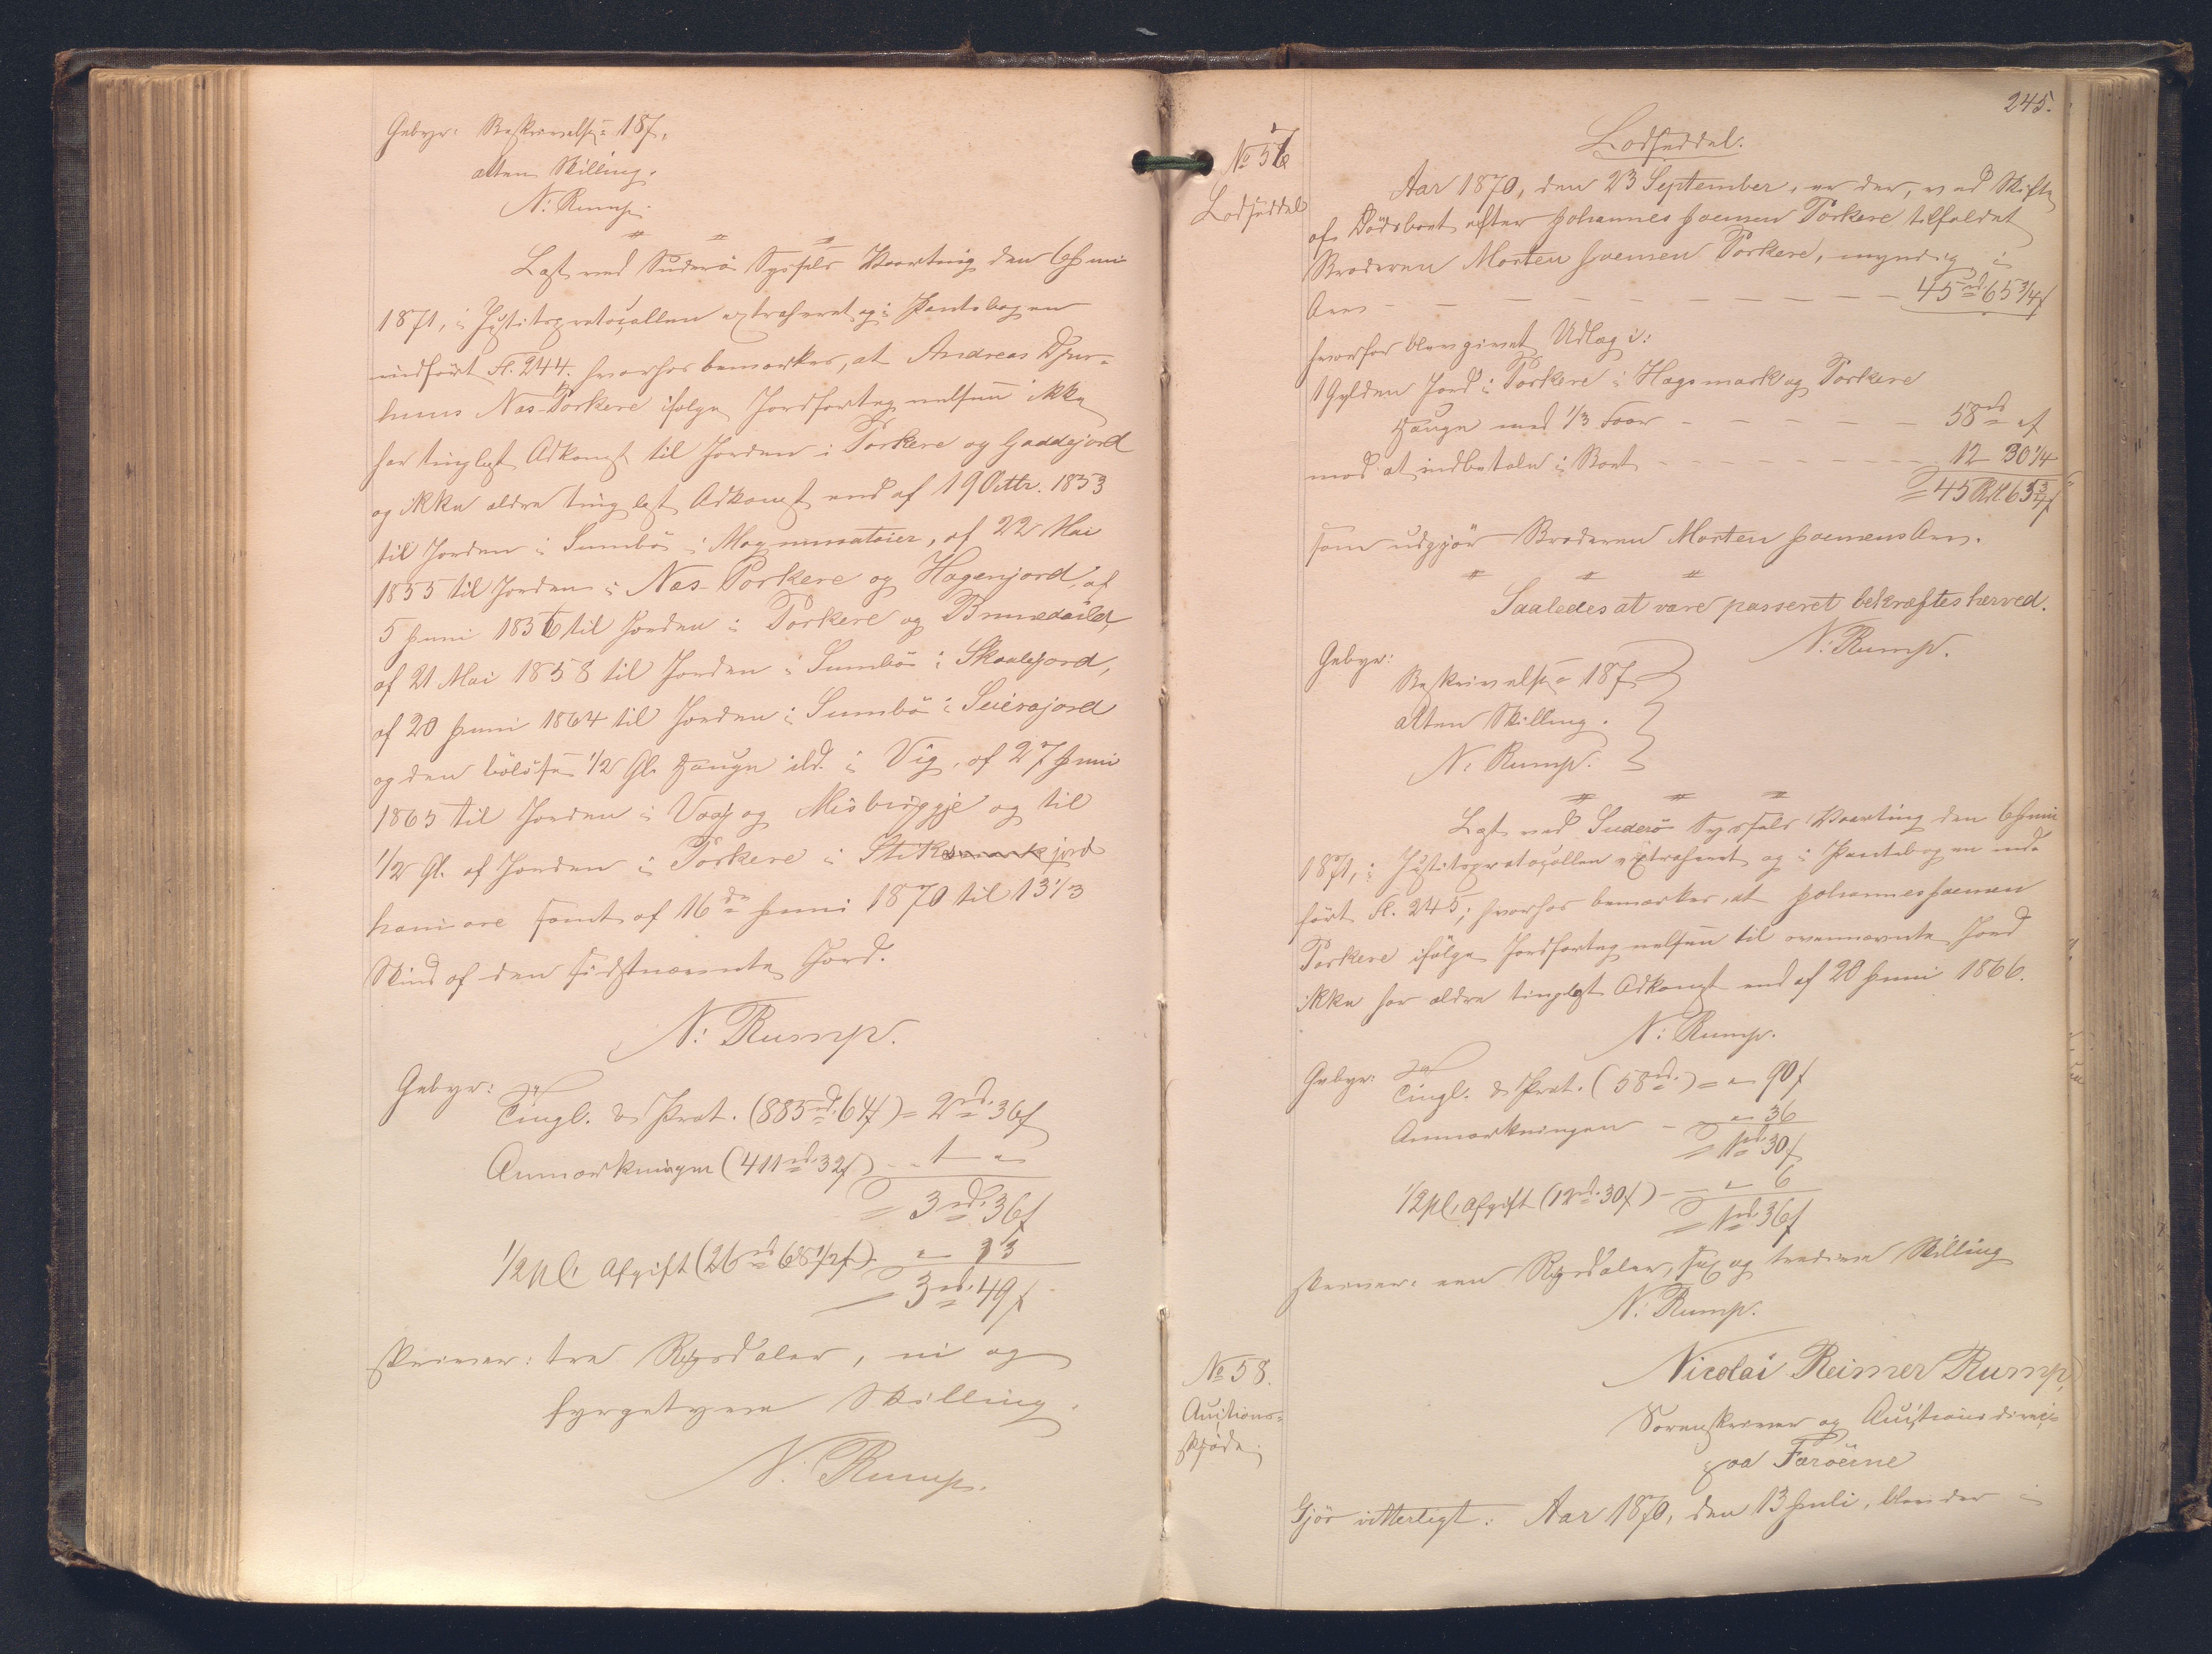 Gebyr: Beskrivelse = 18ſ,
atten Skilling.
N: Rump.
Læst ved Suderö Syssels Vaarting den 6 Juni
1871, i Justitsprotocollen extraheret og i Pantebogen
indført Fl. 244. hvorhos bemærkes, at Andreas Djur-
huus Næs-Porkere ifølge Jordfortegnelsen ikke
har tinglæst Adkomst til Jorden i Porkere og Gaddejord
og ikke ældre tinglæst Adkomst end af 19 Octbr. 1853
til Jorden i Sumbö i Magnusatoier, af 22 Mai
1855 til Jorden i Næs-Porkere og Hagenjord, af
5 Juni 1856 til Jorden i Porkere og
af 21 Mai 1858 til Jorden i Sumbö i Skaalejord,
af 20 Juni 1864 til Jorden i Sumbö i Seierajord
og den bölöse 1/2 Gl. Hauge ibd. i Vig, af 27 Juni
1865 til Jorden i Vaag og Misbirggje og til
1/2 Gl. af Jorden i Porkere i Stikjord
samt af 16de Juni 1870 til 13 1/3
Skind af den sidstnævnte Jord.
N: Rump.
Gebyr:
Tingl. & Prot. (885rd. 64ſ) = 2rd. 36ſ
Anmærkningen (411rd. 32ſ) - 1 - "
= 3rd. 36ſ
1/2 pCt. Afgift (26rd 68 1/2ſ) - " 13
= 3rd. 49ſ
skriver: tre Rigsdaler, ni og
fyrgetyve Skilling.
N. Rump.
245.
No 57
Lodseddel
Lodseddel.
Aar 1870, den 23 September, er der, ved Skifte
af Dödsboet efter Johannes Joensen Porkere tilfaldet
Broderen Morten Joensen Porkere, myndig i
Arv - - - - - - - - - 45rd 65 3/4ſ
hvorfor blev givet Udlæg i:
1 Gylden Jord i Porkere i Hagsmark og Porkere
Hauge med 1/3 Foer - - - - - 58rd " ſ
mod at indbetale i Boet - - - - - 12 30 1/4
= 45 Rd 65 3/4ſ
som udgjör Broderen Morten Joensens Arv.
Saaledes at være passeret bekræftes herved.
N: Rump.
Gebyr:
Beskrivelse = 18ſ
atten Skilling.
N: Rump.
Læst ved Suderö Syssels Vaarting den 6 Juni
1871, i Justitsprotocollen extraheret og i Pantebogen ind-
ført Fl. 245; hvorhos bemærkes, at Johannes Joensen
Porkere ifølge Jordfortegnelsen til ovennævnte Jord
ikke har ældre tinglæst Adkomst end af 20 Juni 1866.
N: Rump.
Gebyr:
Tingl. & Prot. (58rd.) = " 90ſ
Anmærkningen - " 36
= 1rd. 30ſ
1/2 pCt. Afgift (12rd. 30ſ) - " 6
= 1rd. 36ſ
skriver: een Rigsdaler, sex og tredive Skilling
N: Rump.
No 58.
Auctions-
skjøde.
Nicolai Reimer Rump,
Sorenskriver og Auctionsdirect.
paa Færöerne
Gjör vitterligt: Aar 1870, den 13 Juli, blev der i